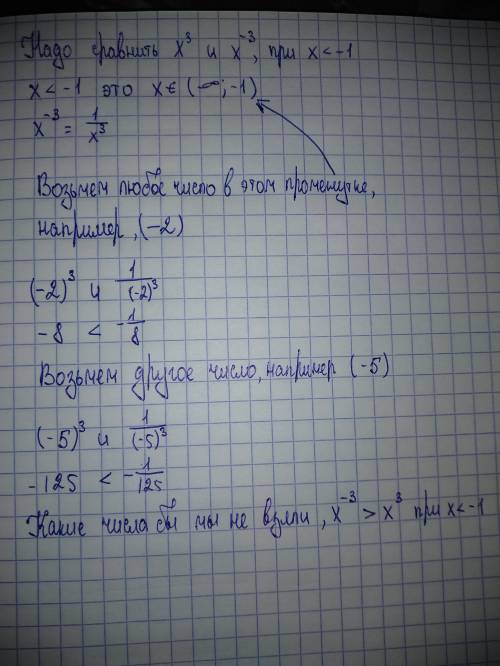 Надо сравнить x³ и x⁻³, при x < -1
x < -1 это x ∈ (-∞; -1)
x⁻³ = 1/x³
Возьмем любое число в этом промежутке,
например, (-2)
(-2)³ и 1/(-2)³
-8 < -1/8
Возьмем другое число, например (-5)
(-5)³ и 1/(-5)³
-125 < -1/125
Какие числа бы мы не взяли, x⁻³ > x³ при x < -1